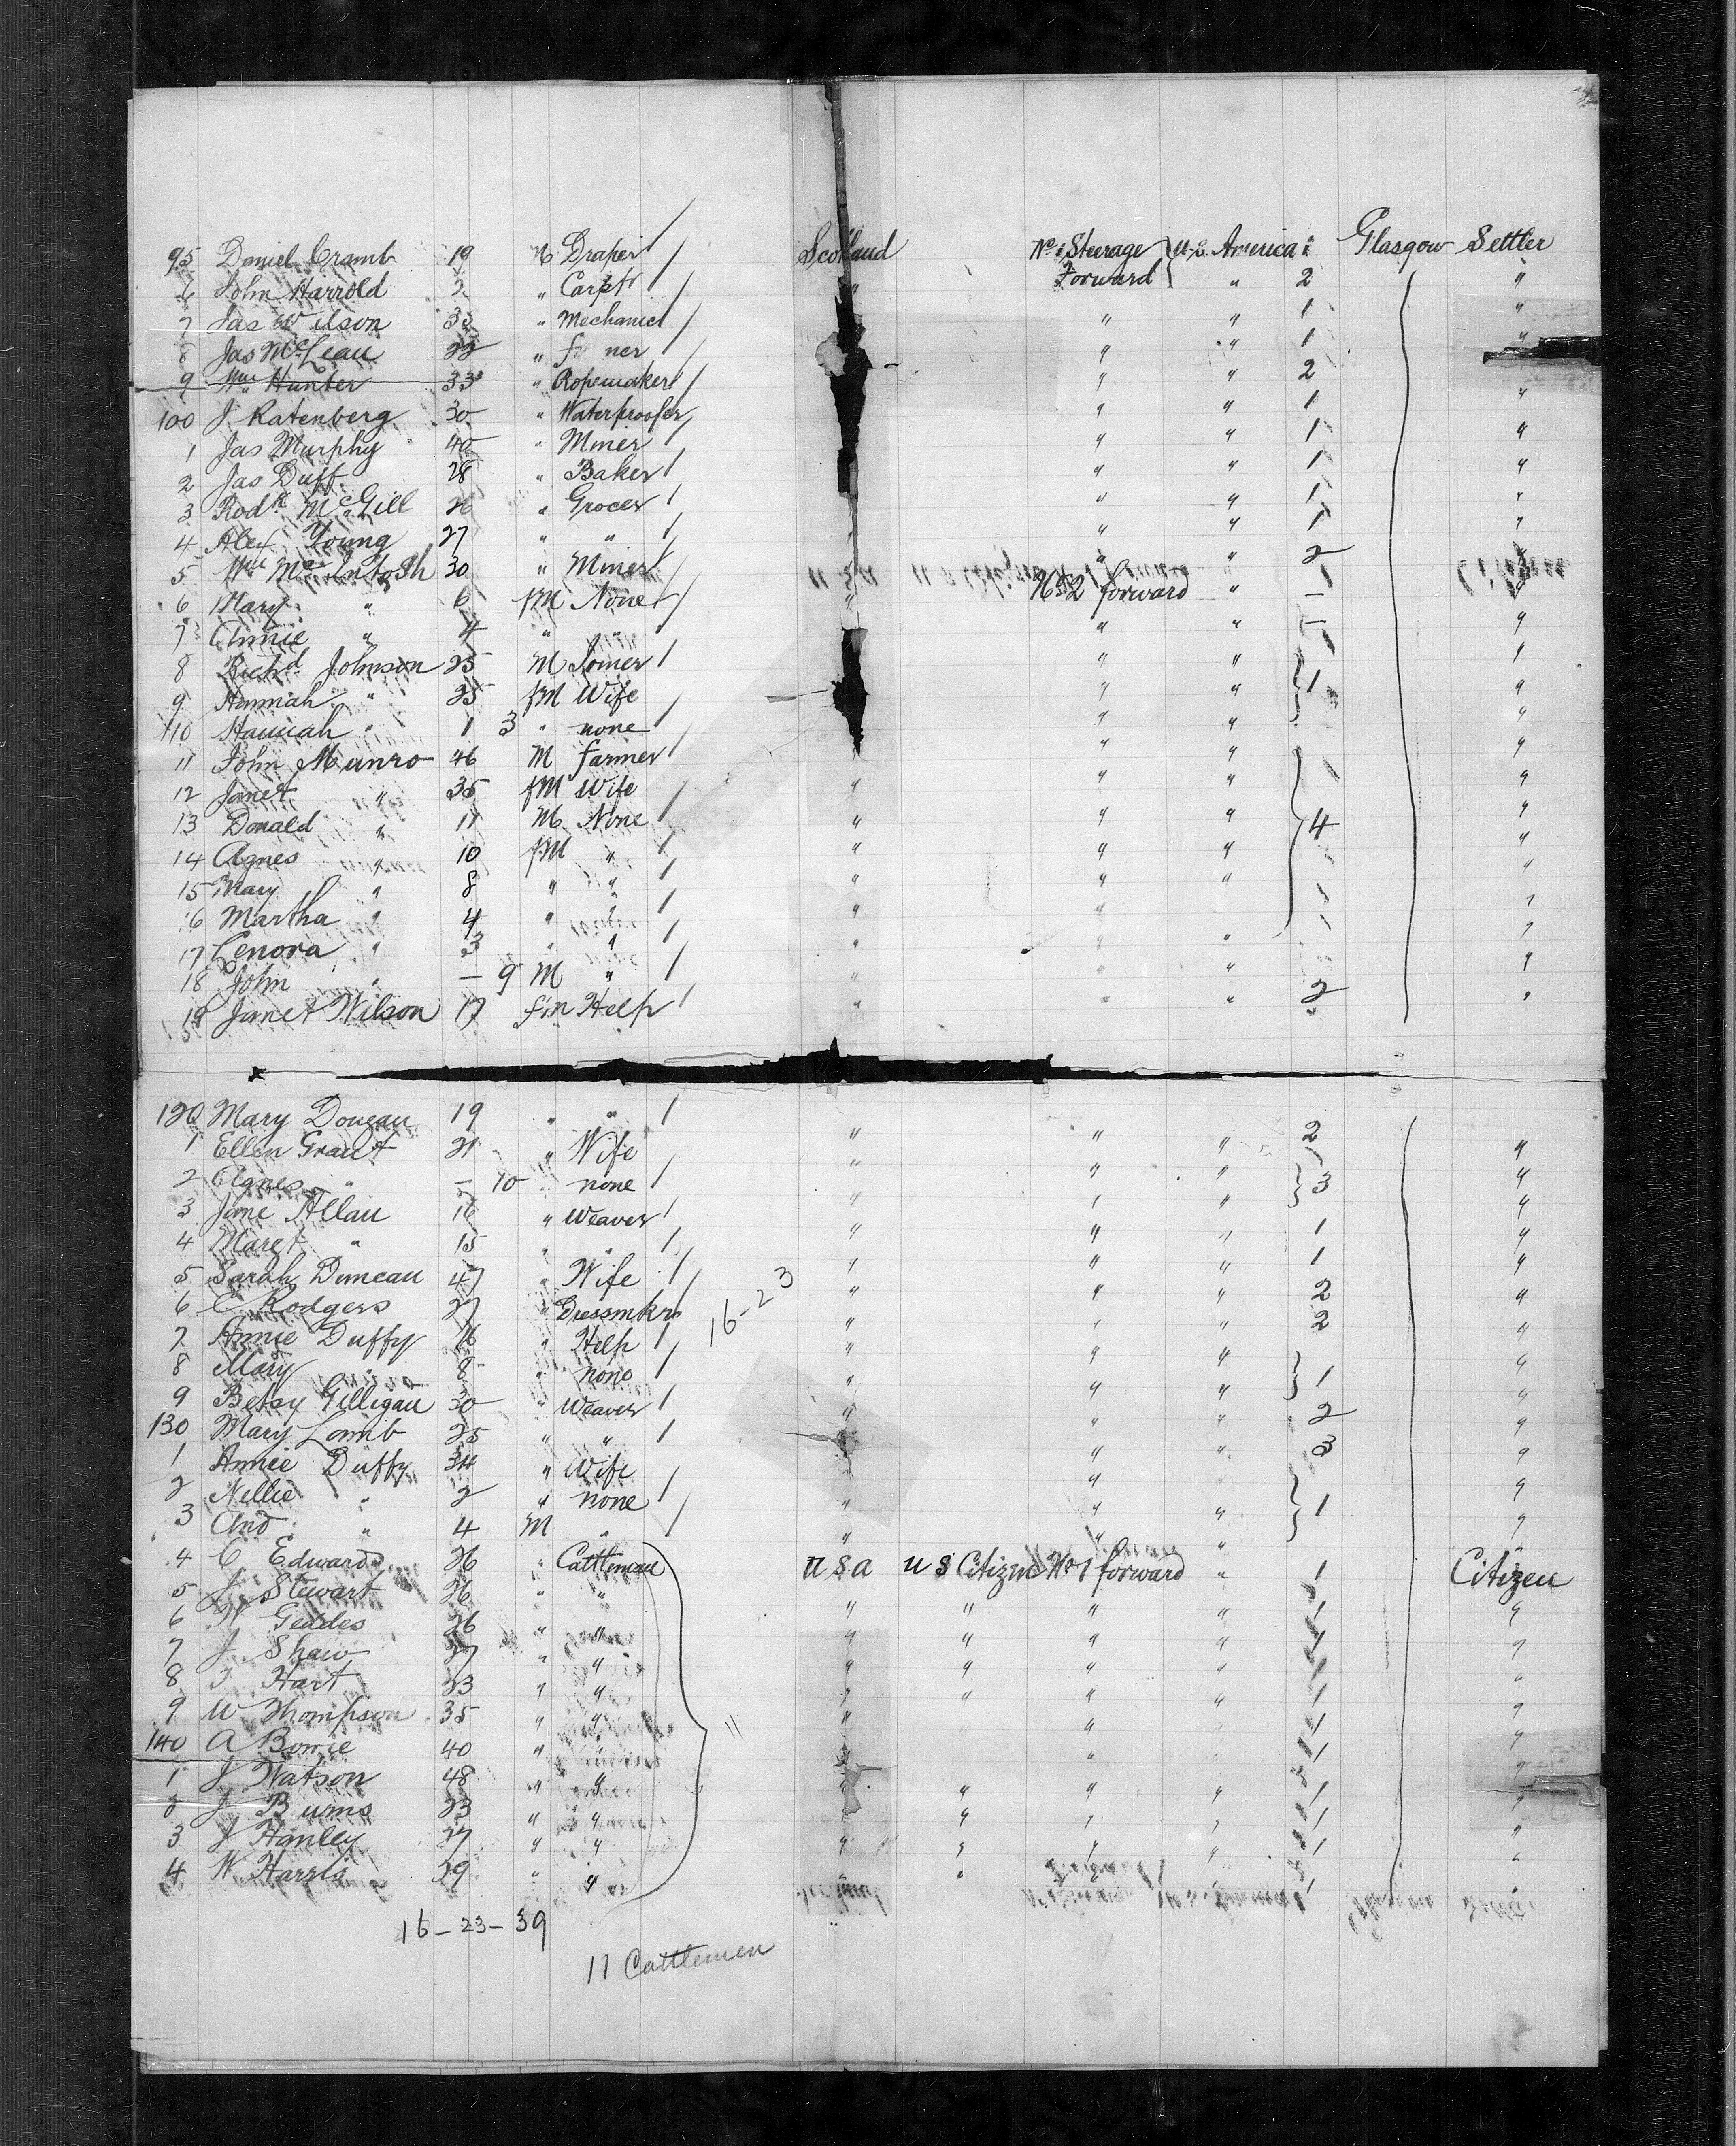 95 Daniel Cramb 19 M Draper / Scotland No 1 Steerage U.S. America 2 Glasgow Settler
6 John Harrold 2 " Carptr / " Forward " 2 "
7 Jas Wilson 33 " Mechanic / " " 1 "
8 Jas McLean 22 " / " " 1 "
9 Wm Hunter 33 " Ropemaker / " " 2 "
100 J Ratenberg 30 " Waterproofer / " " 1 "
1 Jas Murphy 40 " Miner / " " 1 "
2 Jas Duff 28 " Baker / " " 1 "
3 Rodk McGill 26 " Grocer / " " 1 "
4 Alex Young 27 " " / " " 1 "
5 Wm McIntosh 30 " Miner / " " 2 "
6 Mary " 6 fM None / " No 2 forward " – "
7 Annie " 4 " " / " " – "
8 Richd Johnson 25 M Joiner / " " "
9 Hannah " 25 fM Wife " " 1 "
110 Hannah " 1 3 " none / " " "
11 John Munro 46 M farmer / " " "
12 Janet " 35 fM Wife " " " "
13 Donald " 11 M None / " " " 4 "
14 Agnes " 10 fM " / " " " "
15 Mary " 8 " " / " " " "
16 Martha " 4 " " / " " "
17 Lenora " 3 " " / " " " "
18 John " – 9 M " / " " " "
19 Janet Wilson 17 fm Help / " " " 2 "
120 Mary Dougan 19 " " / " " " 2
1 Ellen Grant 21 " Wife " " " "
2 Agnes " – 10 " none / " " " 3 "
3 Jane Allan 16 " Weaver / " " " 1 "
4 Maret " 15 " " / " " " 1 "
5 Sarah Duncan 47 " Wife / " " " 2 "
6 C Rodgers 27 " Dressmkr / 16–23 " " " 2 "
7 Annie Duffy 16 " Help / " " " "
8 Mary " 8 " none / " " " 1 "
9 Betsy Gilligan 30 " Weaver / " " " 2 "
130 Mary Lomb 25 " " / " " " 3 "
1 Annie Duffy 34 " Wife " "
2 Nellie " 2 " none / " " " 1 "
3 And " 4 M " / " " " "
4 C Edwards 26 " Cattleman U S A U S Citizen No 1 forward " 1 Citizen
5 J Stewart 26 " " " " " " 1 "
6 W Geddes 26 " " " " " " 1 "
7 J Shaw 27 " " " " " " 1 "
8 T Hart 23 " " " " " " 1 "
9 W Thompson 35 " " " " 1 "
140 A Bowie 40 " " 11 " 1 "
1 J Watson 48 " " " " " " 1 "
2 J Burns 23 " " " " " 1 "
3 J Hanley 27 " " " " " " 1 "
4 W Harris 39 " " " " "
16 – 23 – 39
11 Cattlemen